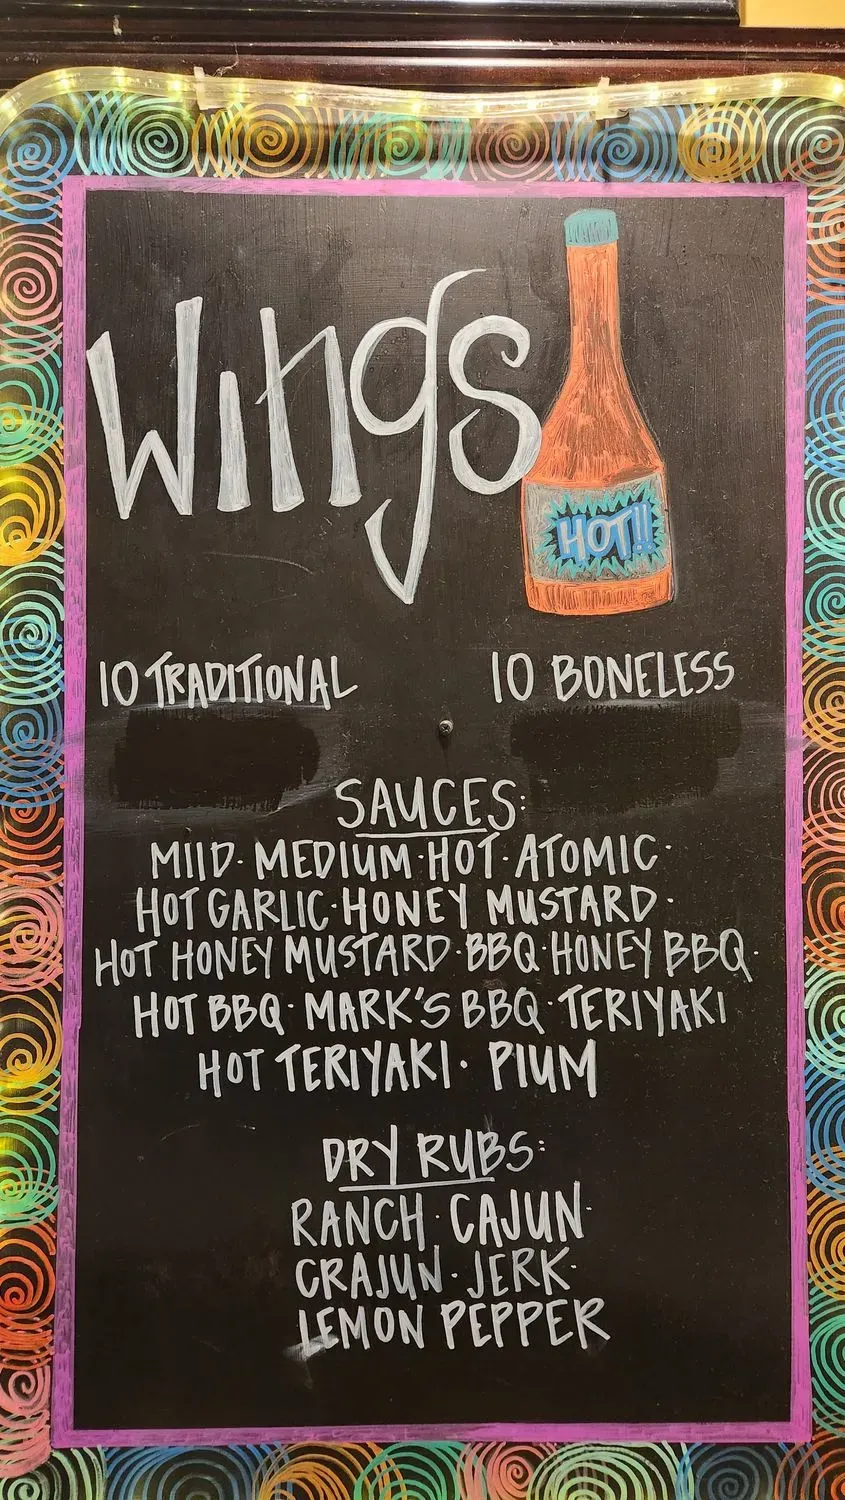 Wings
HOT!!
10 TRADITIONAL
10 BONELESS
SAUCES:
MIlD · MEDIUM · HOT · ATOMIC ·
HOT GARLIC · HONEY MUSTARD ·
HOT HONEY MUSTARD · BBQ · HONEY BBQ ·
HOT BBQ · MARK'S BBQ · TERIYAKI
HOT TERIYAKI · PlUM
DRY RUBS:
RANCH · CAJUN ·
CRAJUN · JERK ·
LEMON PEPPER